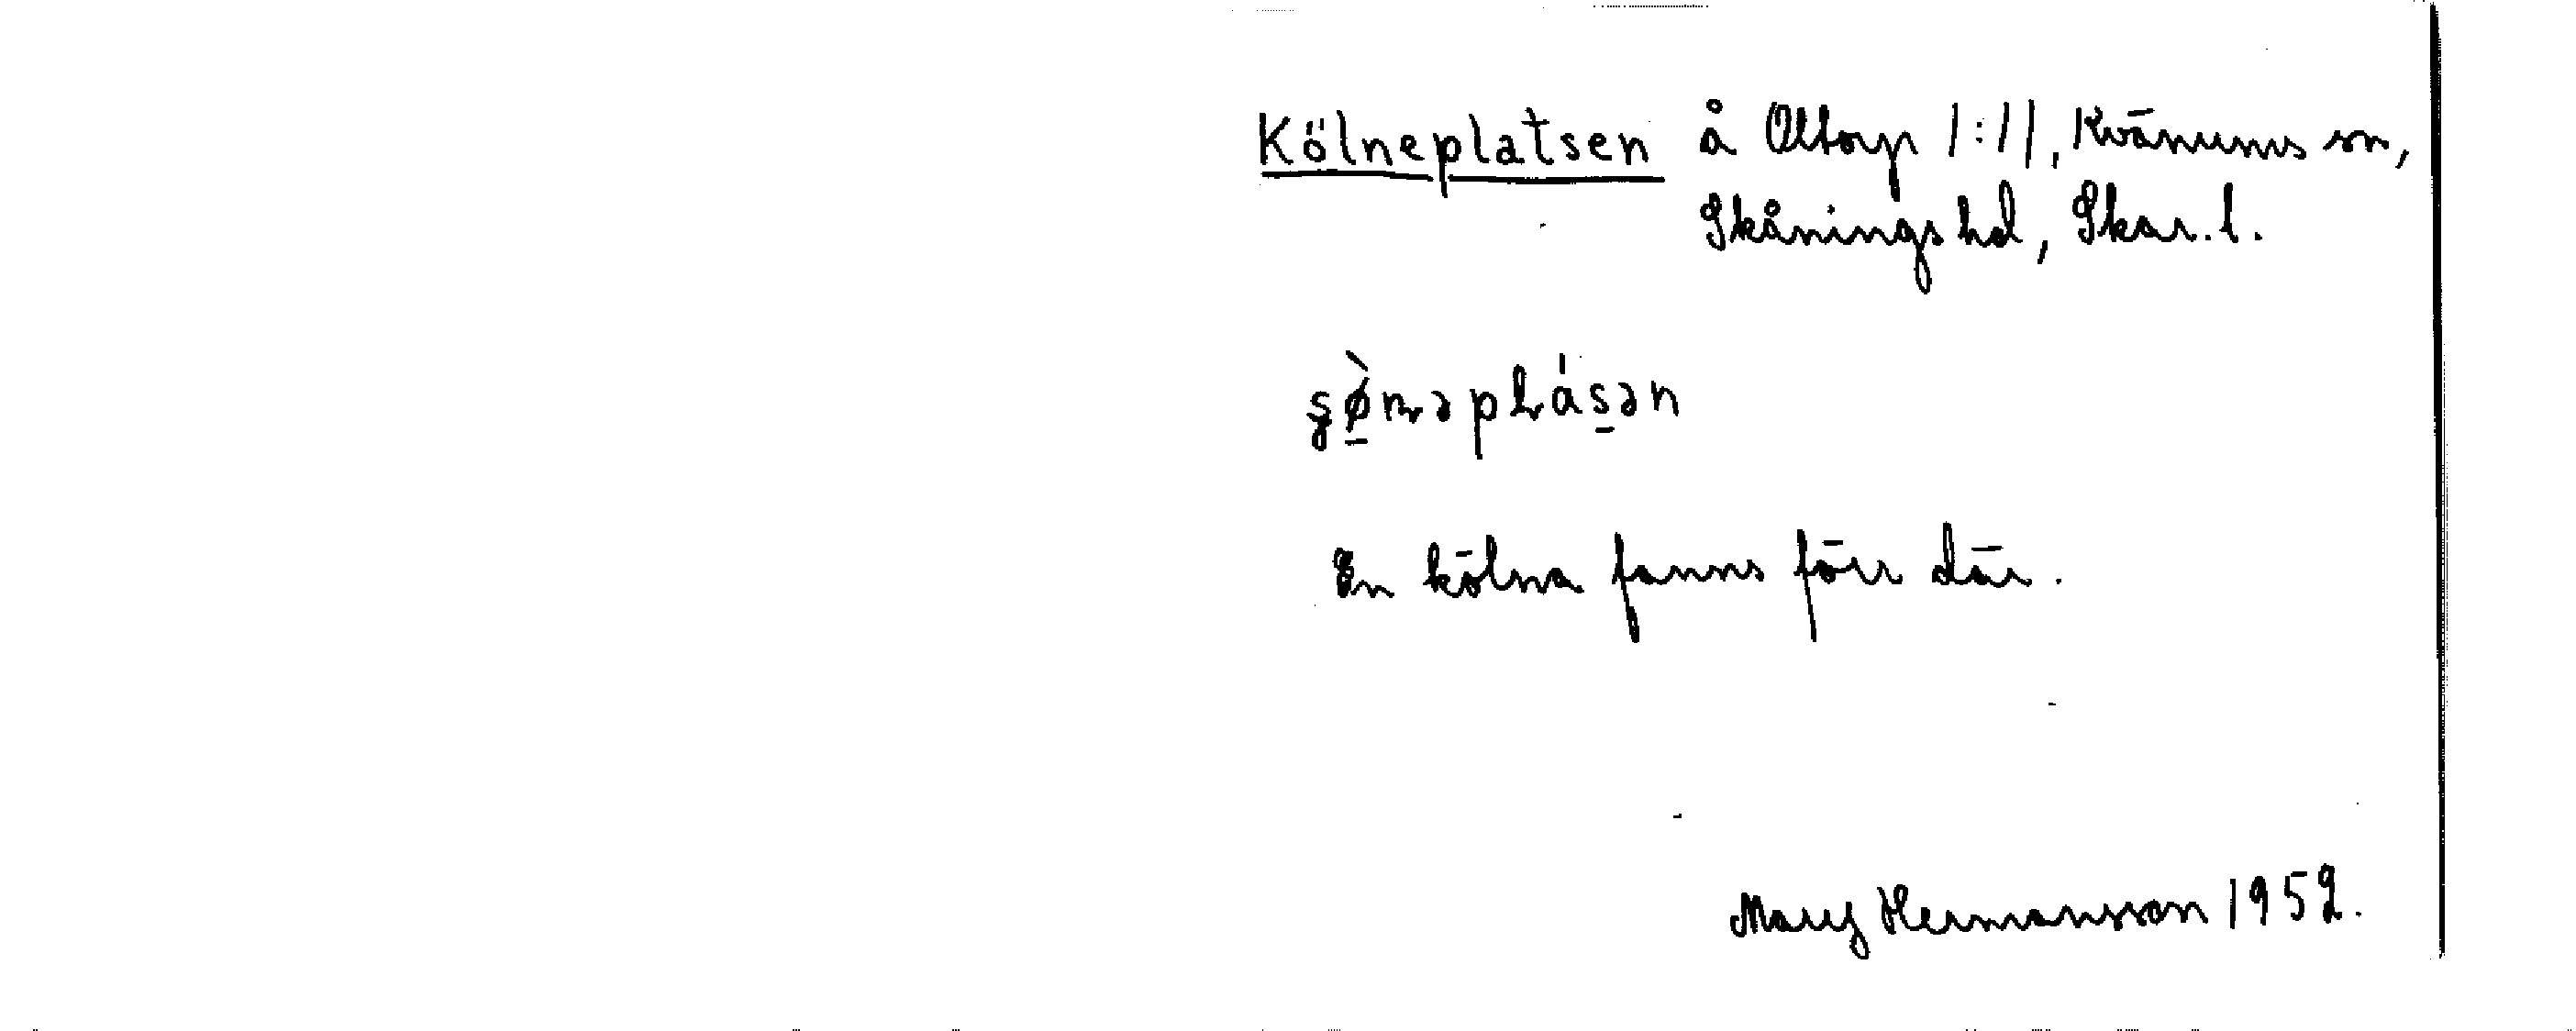 Kölneplatsen å Oltorp 1:11, Kvänums sn,
Skånings hd, Skar. l.
En kölna fanns förr där.
Mary Hermansson 1952.